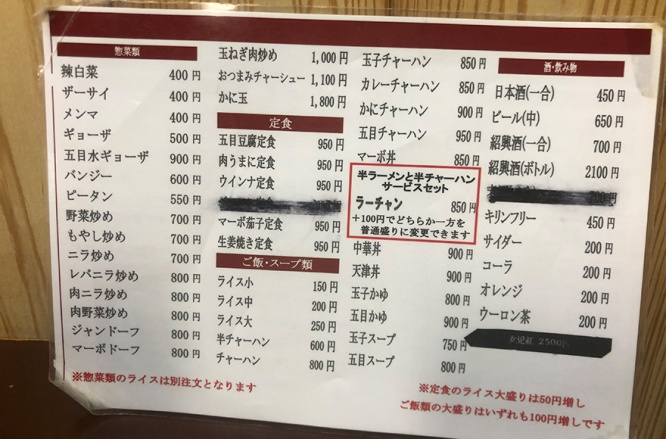 惣菜類
辣白菜 400円
ザーサイ 400円
メンマ 400円
ギョーザ 500円
五目水ギョーザ 900円
バンジー 600円
ピータン 550円
野菜炒め 700円
もやし炒め 700円
ニラ炒め 700円
レバニラ炒め 800円
肉ニラ炒め 800円
肉野菜炒め 800円
ジャンドーフ 800円
マーボドーフ 800円
※惣菜類のライスは別注文となります
玉ねぎ肉炒め 1,000円
おつまみチャーシュー 1,100円
かに玉 1,800円
定食
五目豆腐定食 950円
肉うまに定食 950円
ウインナ定食 950円
マーボ茄子定食 950円
生姜焼き定食 950円
ご飯・スープ類
ライス小 150円
ライス中 200円
ライス大 250円
半チャーハン 600円
チャーハン 800円
玉子チャーハン 850円
カレーチャーハン 850円
かにチャーハン 900円
五目チャーハン 950円
マーボ丼 850円
半ラーメンと半チャーハン
サービスセット
ラーチャン 850円
+100円でどちらか一方を
普通盛りに変更できます
中華丼 900円
天津丼 900円
玉子かゆ 800円
五目かゆ 900円
玉子スープ 750円
五目スープ 800円
酒・飲み物
日本酒(一合) 450円
ビール(中) 650円
紹興酒(一合) 700円
紹興酒(ボトル) 2100円
キリンフリー 450円
サイダー 200円
コーラ 200円
オレンジ 200円
ウーロン茶 200円
女児紅 2500円
※定食のライス大盛りは50円増し
ご飯類の大盛りはいずれも100円増しです